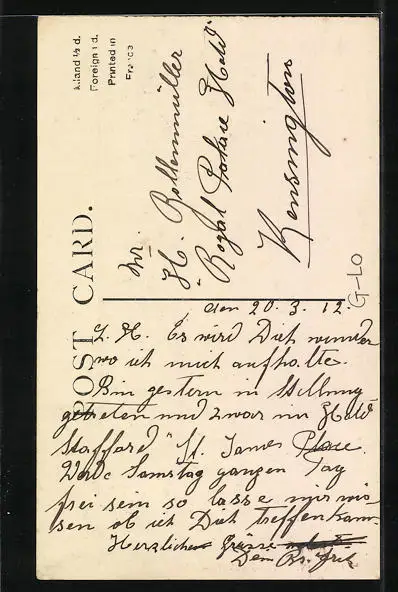 POST CARD.
Inland ½ d.
Foreign 1 d.
Printed in
France
Mr.
H. Bollenmüller
"Royal Palace Hotel"
Kensington
G-LO
den 20.3.12.
L. H. Es wird Dich wundern
wo ich mich aufhalte.
Bin gestern in Stellung
getreten und zwar im Hotel
Stafford "St. James Place.
Werde Samstag ganzen Tag
frei sein so lasse mir wis
sen ob ich Dich treffen kann.
Herzlichen Grüsse
Dein Br. Fritz